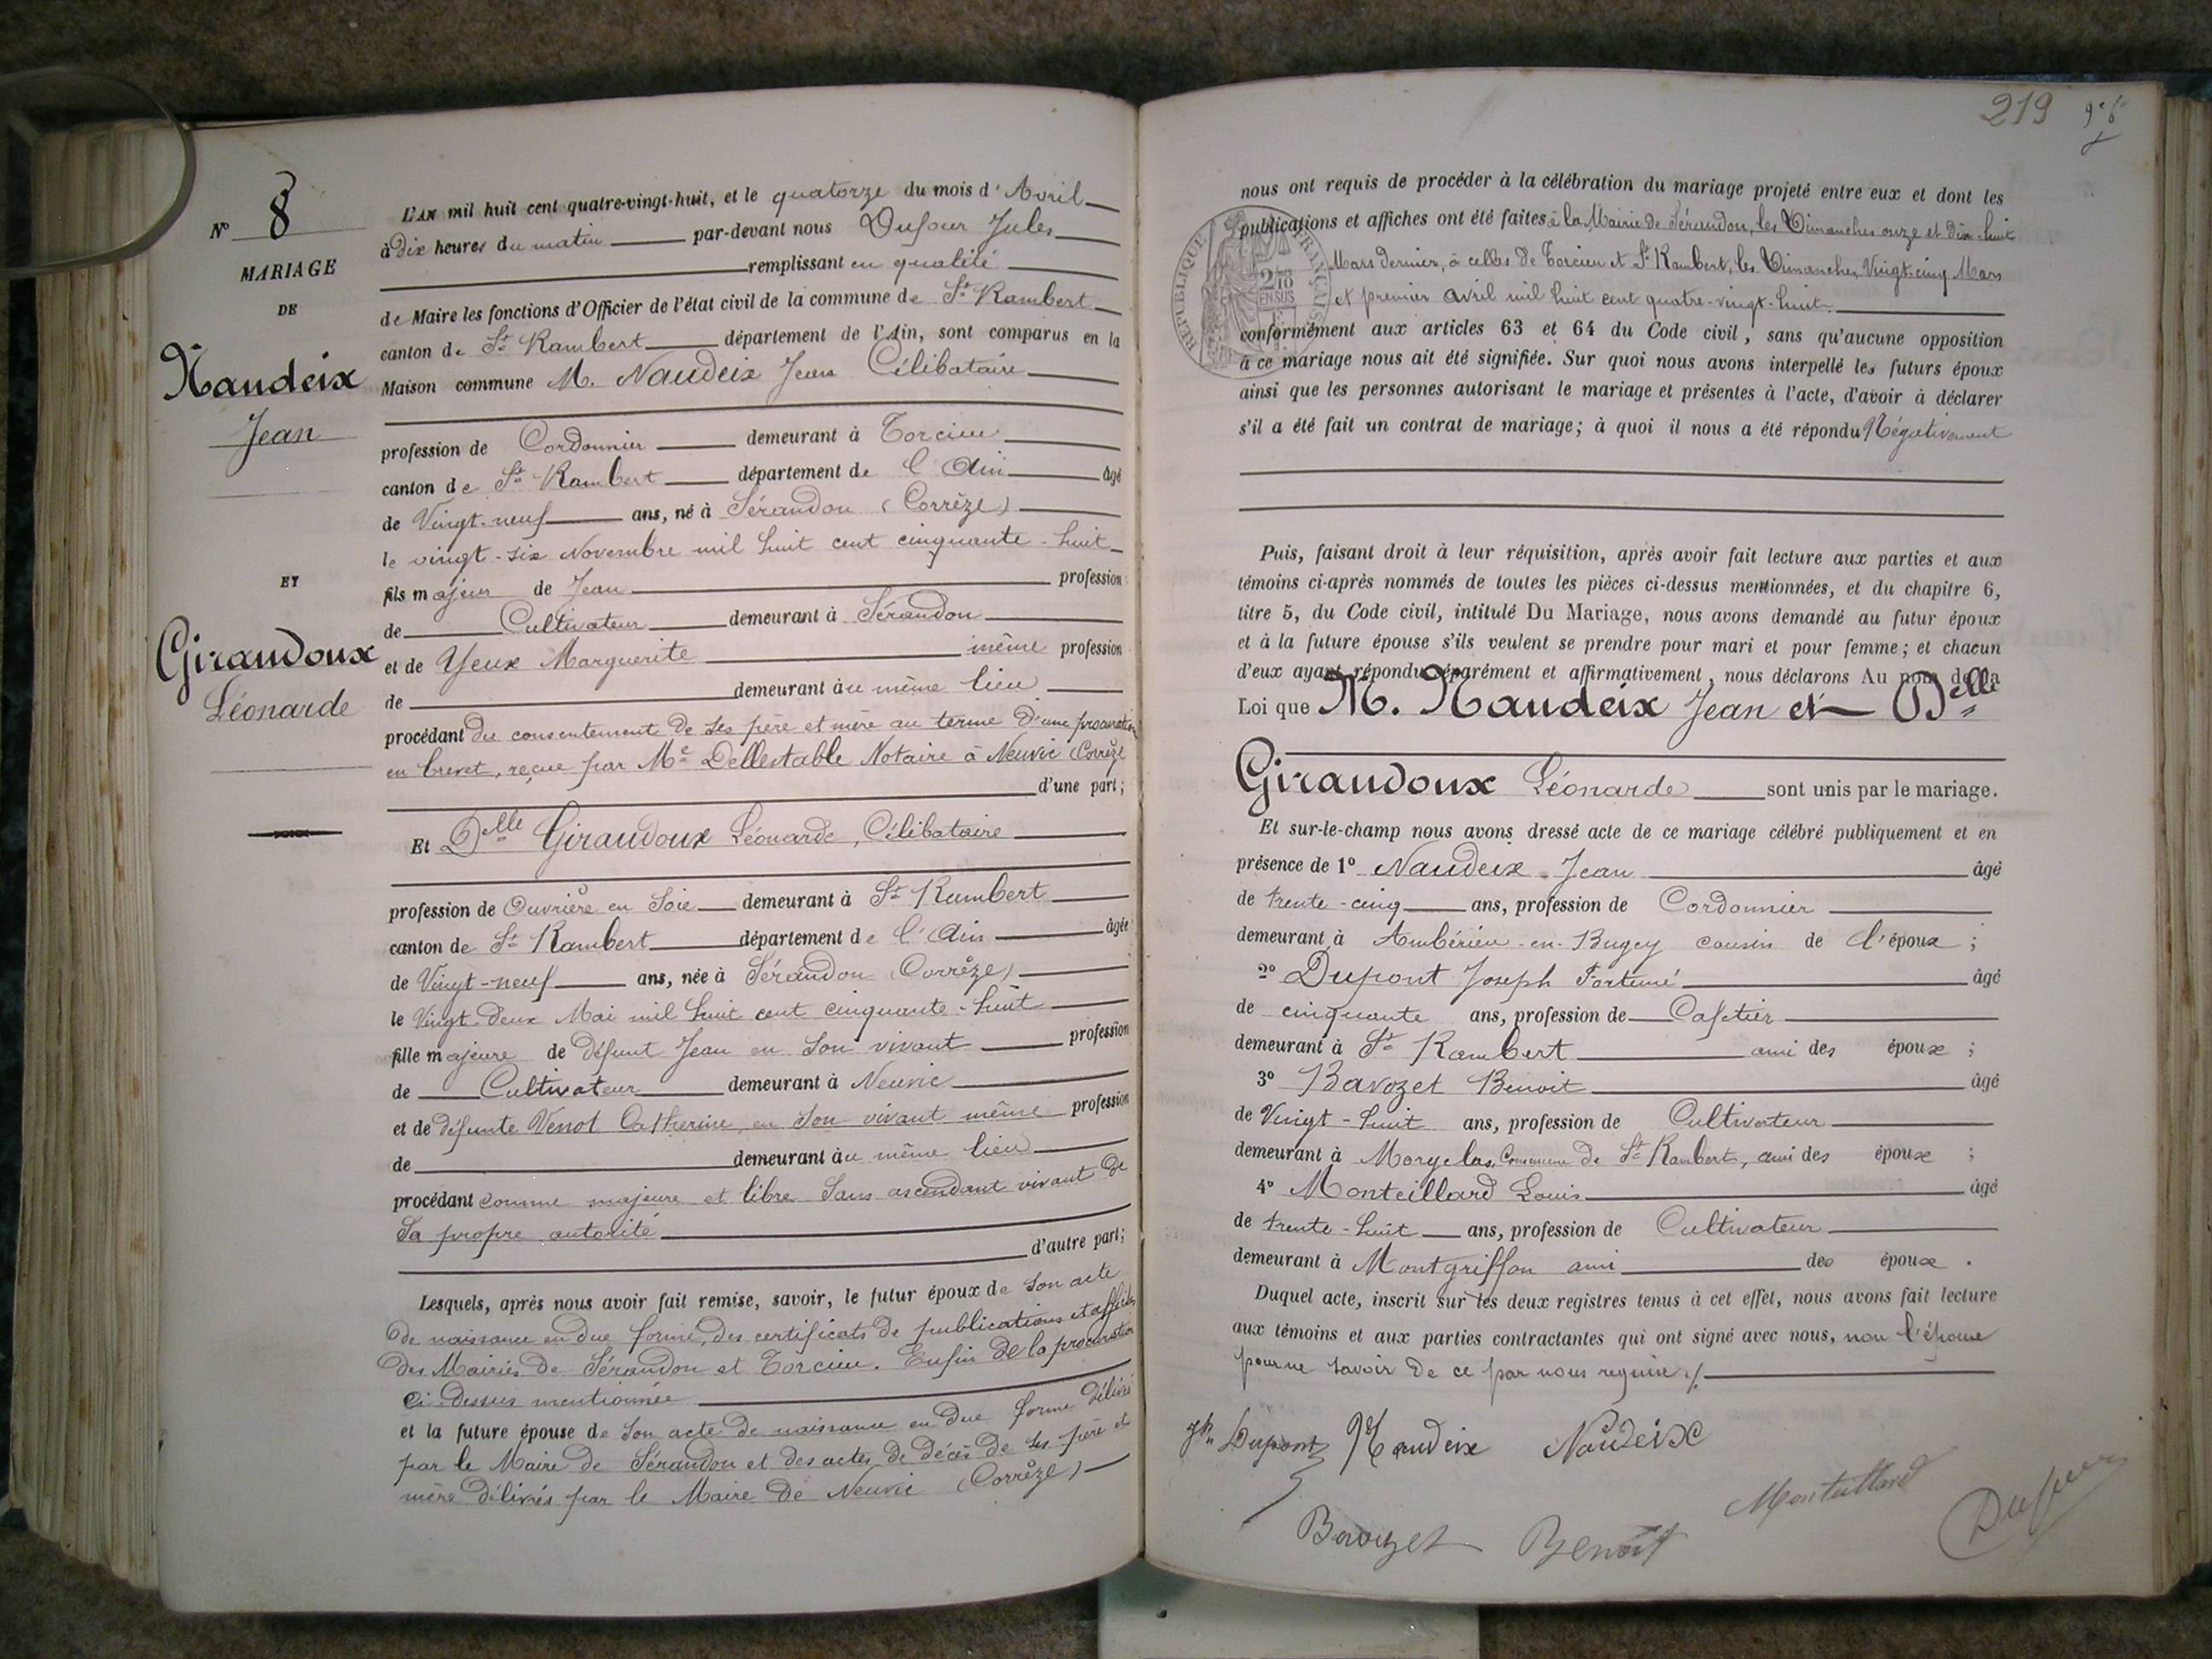 Nº 8
MARIAGE
DE
Naudeix
Jean
ET
Giraudoux
Léonarde
L'AN mil huit cent quatre-vingt-huit, et le quatorze du mois d'Avril
à dix heures du matin par-devant nous Dufour Jules
remplissant en qualité
de Maire les fonctions d'Officier de l'état civil de la commune de St Rambert
canton de St Rambert département de l'Ain, sont comparus en la
Maison commune M. Naudeix Jean Célibataire
profession de Cordonnier demeurant à Torcieu
canton de St Rambert département de l'Ain âgé
de Vingt-neuf ans, né à Sérandon (Corrèze)
le vingt-six Novembre mil huit cent cinquante-huit
fils majeur de Jean profession
de Cultivateur demeurant à Sérandon
et de Yeux Marguerite même profession
de demeurant au même lieu
procédant du consentement de ses père et mère au terme d'une procuration
en brevet, reçue par Me Dellestable Notaire à Neuvic (Corrèze
d'une part;
Et Delle Giraudoux Léonarde, Célibataire
profession de Ouvrière en Soie demeurant à St Rambert
canton de St Rambert département de l'Ain âgée
de Vingt-neuf ans, née à Sérandon (Corrèze)
le Vingt-deux Mai mil huit cent cinquante-huit
fille majeure de défunt Jean en son vivant profession
de Cultivateur demeurant à Neuvic
et de défunte Venot Catherine, en son vivant même profession
de demeurant au même lieu
procédant comme majeure et libre Sans ascendant vivant de
Sa propre autorité
d'autre part;
Lesquels, après nous avoir fait remise, savoir, le futur époux de son acte
de naissance en due forme, des certificats de publications et affiches
des Mairies de Sérandon et Torcieu. Enfin de la procuration
ci-dessus mentionnée
et la future épouse de son acte de naissance en due forme délivré
par le Maire de Sérandon et des actes de décès de ses père et
mère délivrés par le Maire de Neuvic (Corrèze)
219
nous ont requis de procéder à la célébration du mariage projeté entre eux et dont les
publications et affiches ont été faites à la Mairie de Sérandon, les Dimanches onze et dix-huit
Mars dernier, à celles de Torcieu et St Rambert, les Dimanches, Vingt-cinq Mars
et premier avril mil huit cent quatre-vingt-huit.
conformément aux articles 63 et 64 du Code civil, sans qu'aucune opposition
à ce mariage nous ait été signifiée. Sur quoi nous avons interpellé les futurs époux
ainsi que les personnes autorisant le mariage et présentes à l'acte, d'avoir à déclarer
s'il a été fait un contrat de mariage; à quoi il nous a été répondu Négativement
Puis, faisant droit à leur réquisition, après avoir fait lecture aux parties et aux
témoins ci-après nommés de toutes les pièces ci-dessus mentionnées, et du chapitre 6,
titre 5, du Code civil, intitulé Du Mariage, nous avons demandé au futur époux
et à la future épouse s'ils veulent se prendre pour mari et pour femme; et chacun
d'eux ayant répondu séparément et affirmativement, nous déclarons Au nom de la
Loi que M. Naudeix Jean et Delle
Giraudoux Léonarde sont unis par le mariage.
Et sur-le-champ nous avons dressé acte de ce mariage célébré publiquement et en
présence de 1º Naudeix Jean âgé
de trente-cinq ans, profession de Cordonnier
demeurant à Ambérieu-en-Bugey cousin de l'époux;
2º Dupont Joseph Fortuné âgé
de cinquante ans, profession de Cafetier
demeurant à St Rambert ami des époux;
3º Bavozet Benoit âgé
de Vingt-huit ans, profession de Cultivateur
demeurant à Morgelas, Commune de St Rambert, ami des époux;
4º Monteillard Louis âgé
de trente-huit ans, profession de Cultivateur
demeurant à Montgriffon ami des époux.
Duquel acte, inscrit sur les deux registres tenus à cet effet, nous avons fait lecture
aux témoins et aux parties contractantes qui ont signé avec nous, non l'épouse
pour ne savoir de ce par nous requise ./.
Dupont Naudeix Naudeix
Monteillard
Bavozet Benoit Dufour
REPUBLIQUE FRANÇAISE
2/10
EN SUS